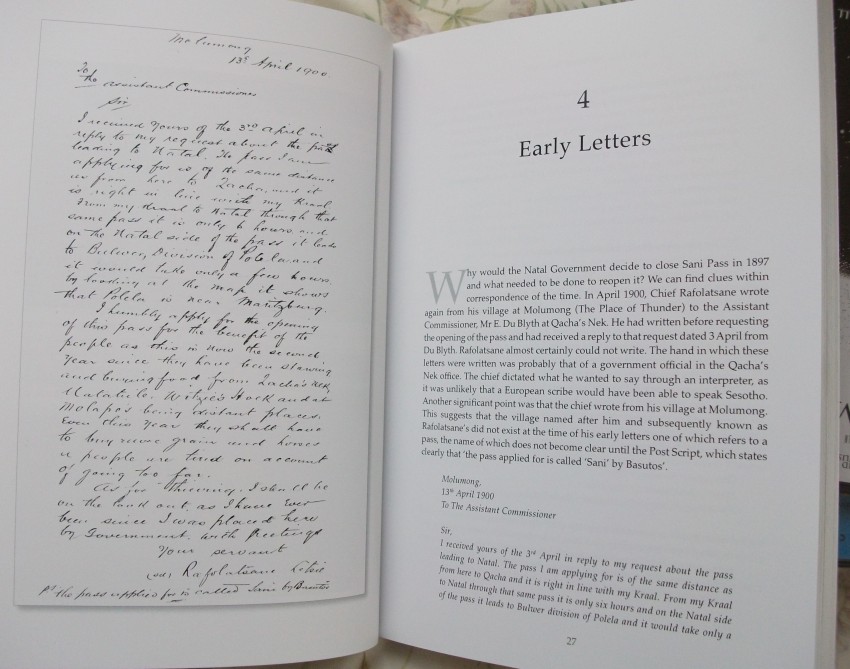 Molumong
13th April 1900
To
the Assistant Commissioner
Sir
I received yours of the 3rd April in
reply to my request about the pass
leading to Natal. The pass I am
applying for is of the same distance
as from here to Qacha, and it
is right in line with my Kraal
From my Kraal to Natal through that
same pass it is only 6 hours and
on the Natal side of the pass it leads
to Bulwer Division of Polela and
it would take only a few hours.
by looking at the map it shows
that Polela is near Maritzburg.
I humbly apply for the opening
of this pass for the benefit of the
people as this is now the second
year since they have been starving
and buying food from Qacha's Nek
Matatiele. Witzie's Hoek and at
Molapo's being distant places.
Even this year they shall have
to buy more grain and horses
& people are tired on account
of going too far.
As for thieving, I shall be
on the look out, as I have ever
been since I was placed here
by Government. With Greetings
Your servant
Rafolatsane Letsie
Ps the pass applied for is called Sani by Basutos
4
Early Letters
Why would the Natal Government decide to close Sani Pass in 1897
and what needed to be done to reopen it? We can find clues within
correspondence of the time. In April 1900, Chief Rafolatsane wrote
again from his village at Molumong (The Place of Thunder) to the Assistant
Commissioner, Mr E. Du Blyth at Qacha's Nek. He had written before requesting
the opening of the pass and had received a reply to that request dated 3 April from
Du Blyth. Rafolatsane almost certainly could not write. The hand in which these
letters were written was probably that of a government official in the Qacha's
Nek office. The chief dictated what he wanted to say through an interpreter, as
it was unlikely that a European scribe would have been able to speak Sesotho.
Another significant point was that the chief wrote from his village at Molumong.
This suggests that the village named after him and subsequently known as
Rafolatsane's did not exist at the time of his early letters one of which refers to a
pass, the name of which does not become clear until the Post Script, which states
clearly that 'the pass applied for is called 'Sani' by Basutos'.
Molumong,
13th April 1900
To The Assistant Commissioner
Sir,
I received yours of the 3rd April in reply to my request about the pass
leading to Natal. The pass I am applying for is of the same distance as
from here to Qacha and it is right in line with my Kraal. From my Kraal
to Natal through that same pass it is only six hours and on the Natal side
of the pass it leads to Bulwer division of Polela and it would take only a
27